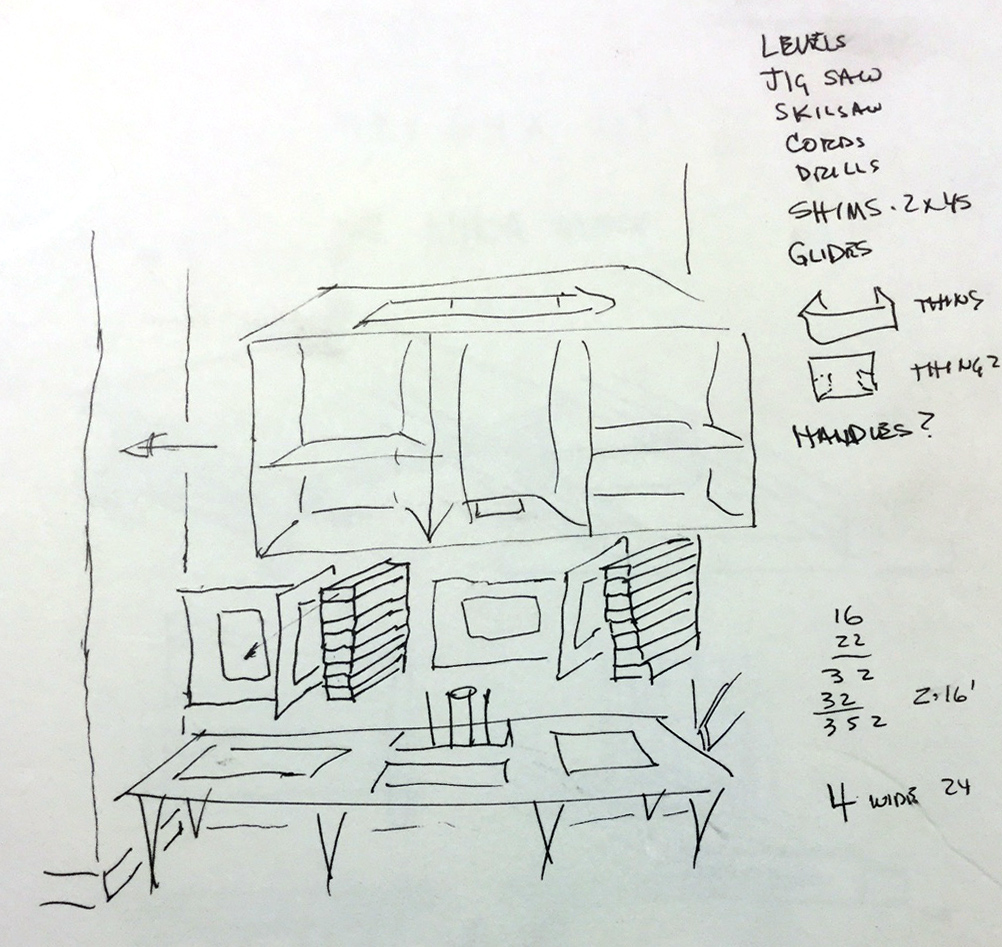 LEVELS
JIG SAW
SKILSAW
CORDS
DRILLS
SHIMS. 2x4S
GLIDES
THING
THING 2
HANDLES?
16
22
32
32
352 2.16'
4 WIDE 24